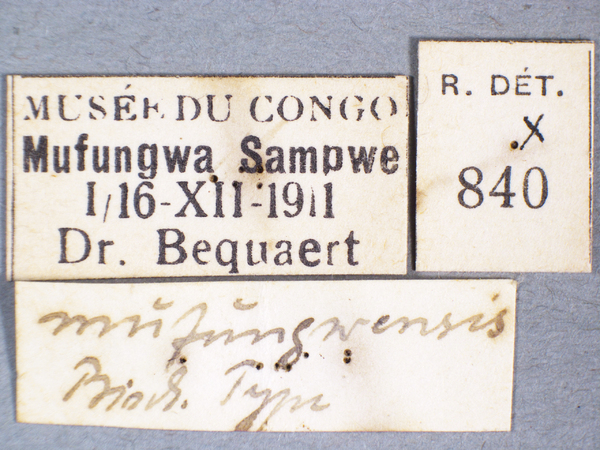 MUSÉE DU CONGO
Mufungwa Sampwe
I/16-XII-1911
Dr. Bequaert
R. DÉT.
X
840
mufungwensis
Type